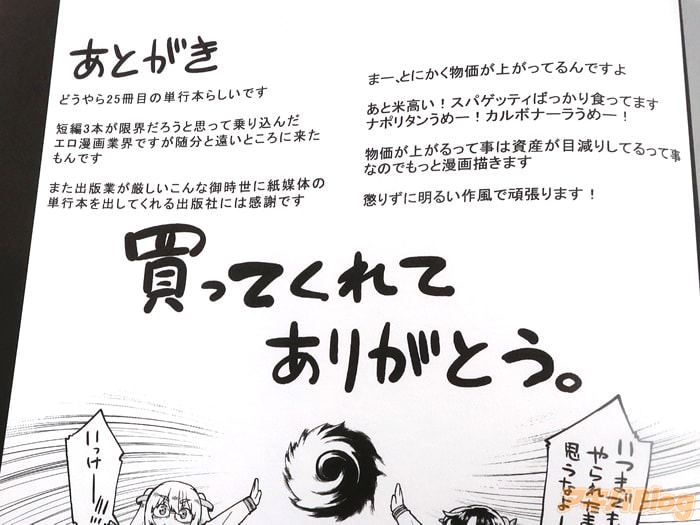 あとがき
どうやら25冊目の単行本らしいです
短編3本が限界だろうと思って乗り込んだ
エロ漫画業界ですが随分と遠いところに来た
もんです
また出版業が厳しいこんな御時世に紙媒体の
単行本を出してくれる出版社には感謝です
まー、とにかく物価が上がってるんですよ
あと米高い！スパゲッティばっかり食ってます
ナポリタンうめー！カルボナーラうめー！
物価が上がるって事は資産が目減りしてるって事
なのでもっと漫画描きます
懲りずに明るい作風で頑張ります！
買ってくれて
ありがとう。
いつまでも
やられたま
思うなよ
いっけー
Blog